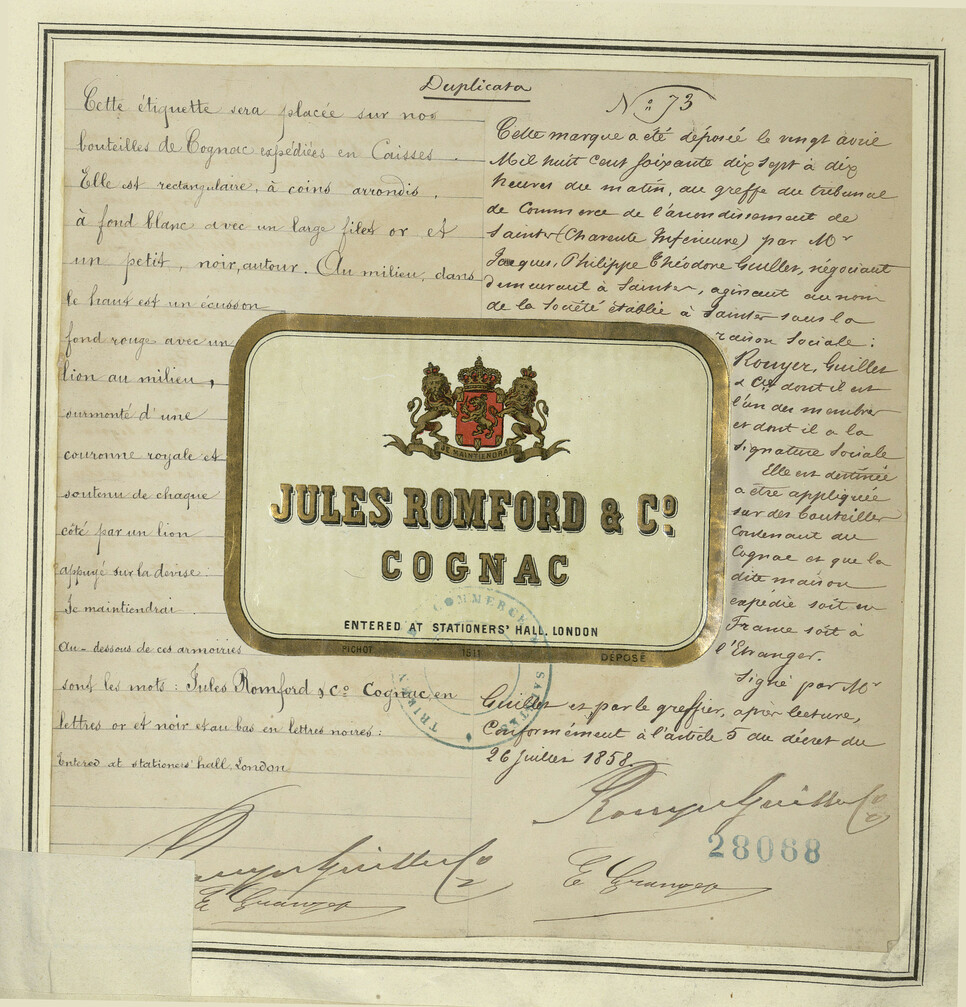 Duplicata
Cette étiquette sera placée sur nos
bouteilles de Cognac expédiées en Caisses.
Elle est rectangulaire, à coins arrondis,
à fond blanc avec un large filet or et
un petit, noir, autour. Au milieu, dans
le haut est un écusson
fond rouge avec un
lion au milieu,
surmonté d'une
couronne royale et
soutenu de chaque
côté par un lion
appuyé sur la devise:
Je maintiendrai
Au-dessous de ces armoiries
sont les mots: Jules Romford & Co Cognac en
lettres or et noir et au bas en lettres noires:
Entered at stationers' hall London
Rouyer Guillet & Co
E Granger
No 73
Cette marque a été déposée le vingt avril
Mil huit cent soixante dix sept à dix
heures du matin, au greffe du tribunal
de Commerce de l'arrondissement de
Saintes (Charente Inférieure) par Mr
Jacques, Philippe Théodore Guillet, négociant
demeurant à Saintes, agissant au nom
de la Société établie à Saintes sous la
raison Sociale:
Rouyer, Guillet
& Cie dont il est
l'un des membres
et dont il a la
signature Sociale
Elle est destinée
a être appliquée
sur des bouteilles
Contenant du
Cognac et que la
dite maison
expédie soit en
France soit à
l'Etranger.
Signé par Mr
Guillet et par le greffier, après lecture,
Conformément à l'article 5 du décret du
26 juillet 1858.
Rouyer Guillet Co
28088
E Granger
JE MAINTIENDRAI
JULES ROMFORD & Co
COGNAC
ENTERED AT STATIONERS' HALL, LONDON
PICHOT 1511 DÉPOSÉ
COMMERCE SAINTES TRIB